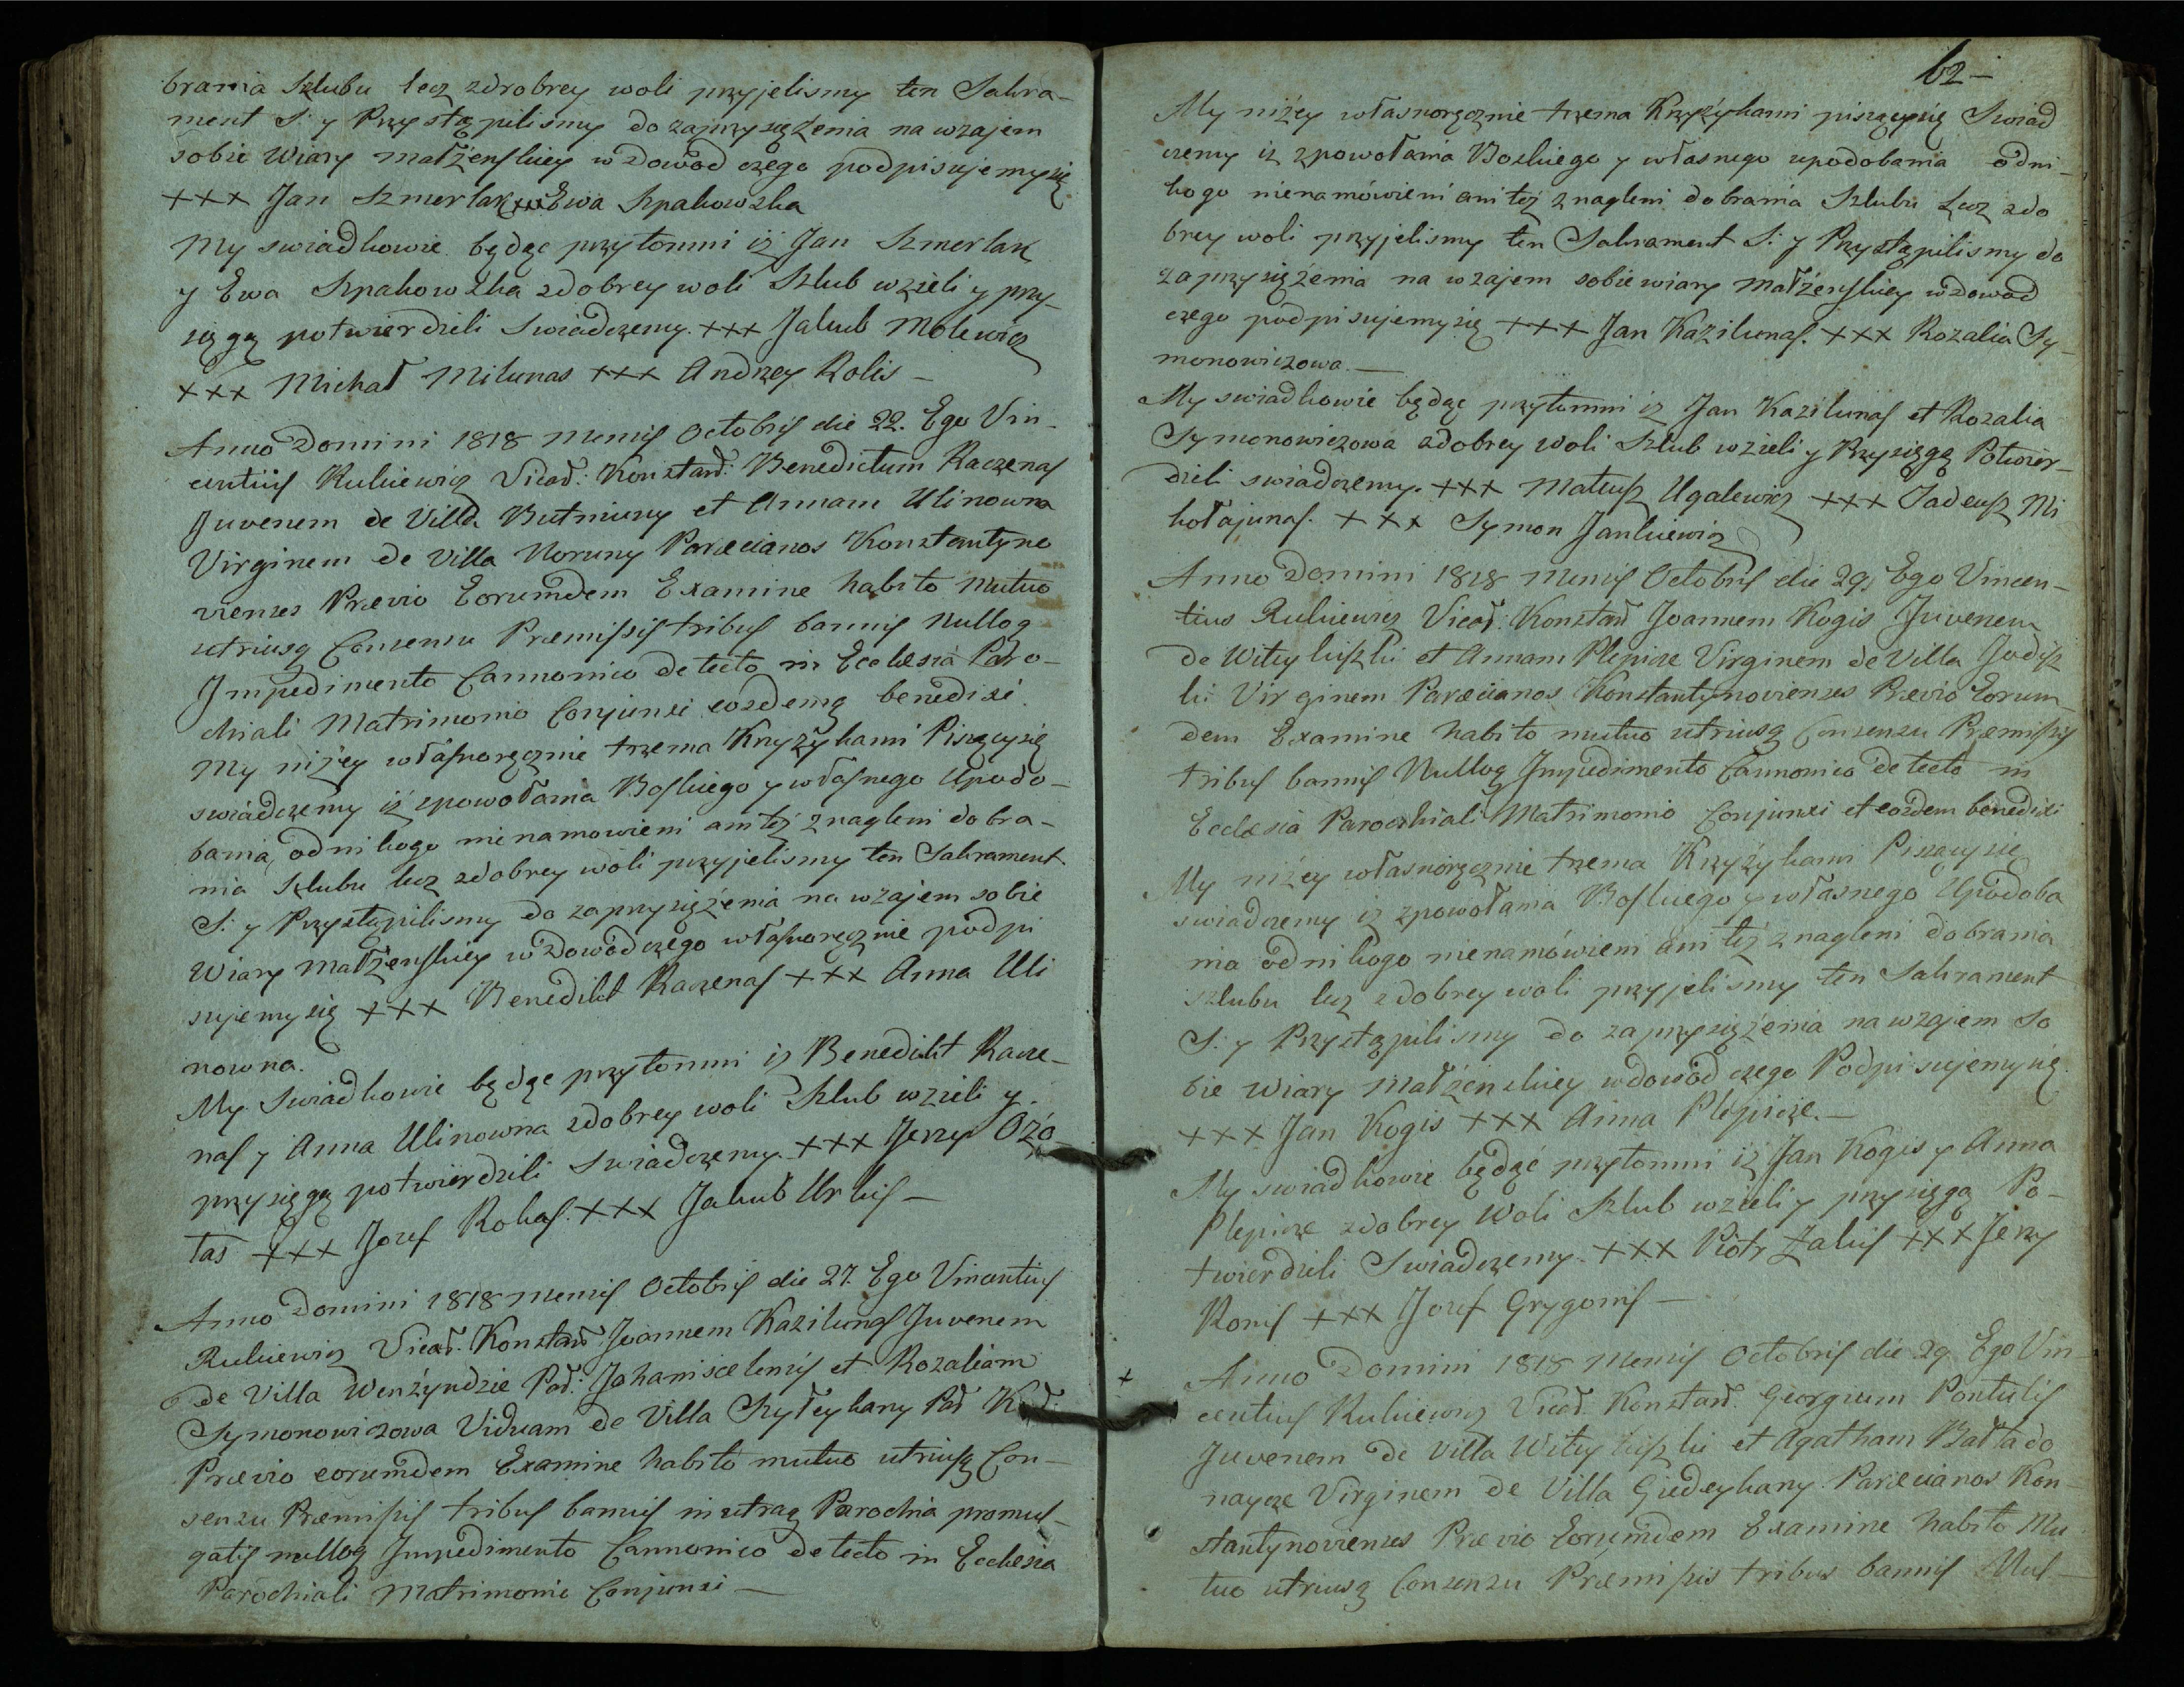 brania Szlubu lecz zdrobrey woli przyjelismy ten Sakra-
ment S: y Przystąpilismy do zaprzysiężenia na wzajem
sobie Wiary małżenskiey w dowod czego podpisujemysię
+++ Jan Szmerlak +++ Ewa Szpakowska
My swiadkowie będąc przytomni iż Jan Szmerlak
y Ewa Szpakowska zdobrey woli Szlub wzieli y przy
sięgę potwierdzili Swiadczemy. +++ Jakub Molewicz
+++ Michał Milunas +++ Andrzey Rolis –
Anno Domini 1818 Mensis Octobris die 22. Ego Vin-
centius Rukiewicz Vicař: Konstanť: Benedictum Raczenas
Juvenem de Villa Butniuny et Annam Ulinowna
Virginem de Villa Noruny Paræcianos Konstantyno
vienses Prævio Eorumdem Examine habito Mutuo
utriusq Consensu Præmissis tribus bannis Nulloq
Impedimento Cannonico detecto in Ecclesia Paro-
chiali Matrimonio Conjunxi eosdemq benedixi
My niżey własnoręcznie trzema Krzyżykami Piszącysię
swiadczemy iż zpowołania Boskiego y własnego Upodo-
bania, odnikogo nienamowieni ani też znagleni dobra-
nia Szlubu lecz zdobrey woli przyjelismy ten Sakrament
S: y Przystąpilismy do zaprzysiężenia na wzajem sobie
Wiary małżenskiey w dowod czego własnoręcznie podpi
sujemysię +++ Benedikt Raczenas +++ Anna Uli
nowna.
My Swiadkowie będąc przytomni iż Benedikt Racze-
nas y Anna Ulinowna zdobrey woli Szlub wzieli y
przysięgę potwierdzili Swiadczemy. +++ Jerzy Ożo
łas +++ Jozef Rokas. +++ Jakub Urkis –
Anno Domini 1818 Mensis Octobris die 27. Ego Vincentius
Rukiewicz Vicař. Konstanť Joannem Kazilunas Juvenem
de Villa Wenżyndzie Pař: Johaniscelensis et Rozaliam
Symonowiczowa Viduam de Villa Szyłeykany Pař Koň:
Prævio eorumdem Examine habito mutuo utriusq Con-
sensu Præmissis tribus bannis in utraq Parochia promul-
gatis nulloq Impedimento Cannonico detecto in Ecclesia
Parochiali Matrimonio Conjunxi –
62–
My niżey własnoręcznie trzema Krzyżykami piszącysię Swiad
czemy iż zpowołania Boskiego y własnego upodobania odni-
kogo nienamówieni ani też znagleni dobrania Szlubu Lecz zdo
brey woli przyjelismy ten Sakrament S: y Przystąpilismy do
zaprzysiężenia na wzajem sobie wiary małżenskiey w dowod
czego podpisujemysię +++ Jan Kazilunas. +++ Rozalia Sy-
monowiczowa. –
My swiadkowie będąc przytomni iż Jan Kazilunas et Rozalia
Symonowiczowa zdobrey woli Szlub wzieli y Przysięgę Potwier-
dzili swiadczemy. +++ Mateusz Ugalewicz +++ Tadeusz Mi
kołajunas. +++ Symon Jankiewicz
Anno Domini 1818 Mensis Octobris die 29. Ego Vincen-
tius Rukiewicz Vicař: Konstanť Joannem Kogis Juvenem
de Witeykiszki et Annam Plepicze Virginem de Villa Jodisz
ki Virginem Paræcianos Konstantynovienses Prævio Eorum-
dem Examine habito mutuo utriusq Consensu Præmissis
tribus bannis Nulloq Impedimento Cannonico detecto in
Ecclesia Parochiali Matrimonio Conjunxi et eosdem benedixi
My niżey własnoręcznie trzema Krzyżykami Piszącysię
swiadczemy iż zpowołania Boskiego y własnego Upodoba
nia odnikogo nienamówieni ani też znagleni dobrania
szlubu lecz zdobrey woli przyjelismy ten Sakrament
S: y Przystąpilismy do zaprzysiężenia na wzajem So
bie Wiary Małżenskiey w dowod czego Podpisujemysię
+++ Jan Kogis +++ Anna Plepicze. –
My swiadkowie będąc przytomni iż Jan Kogis y Anna
Plepicze zdobrey Woli Szlub wzieli y przysięgą Po-
twierdzili Swiadczemy. +++ Piotr Żakis +++ Jerzy
Ronis +++ Jozef Grygonis –
+ Anno Domini 1818 Mensis Octobris die 29. Ego Vin-
centius Rukiewicz Vicař. Konstanť. Georgium Pontulis
Juvenem de Villa Witeykiszki et Agatham Bałtado
naycze Virginem de Villa Giedeykany Paræcianos Kon-
stantynovienses Prævio Eorumdem Examine habito Mu
tuo utriusq Consensu Præmissis tribus bannis Nul-